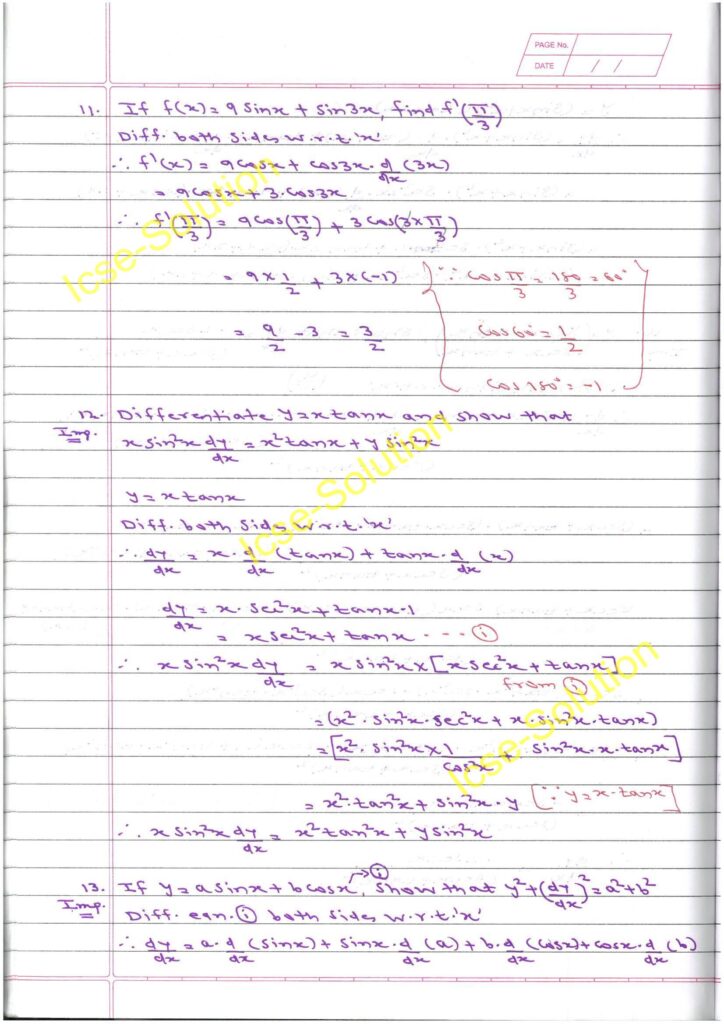 PAGE No.
DATE / /
11. If f(x) = 9 sinx + sin3x, find f'(π/3)
Diff. both sides w.r.t. 'x'
∴ f'(x) = 9cosx + cos3x · d/dx (3x)
= 9cosx + 3.cos3x
∴ f'(π/3) = 9cos(π/3) + 3cos(3×π/3)
= 9×1/2 + 3×(-1) {∵ cos π/3 = 180/3 = 60°
= 9/2 - 3 = 3/2 cos60° = 1/2
cos180° = -1}
12. Differentiate y = x tanx and show that
Imp. x sin²x dy/dx = x² tanx + y sin²x
y = x tanx
Diff. both sides w.r.t. 'x'
∴ dy/dx = x · d/dx (tanx) + tanx · d/dx (x)
dy/dx = x · sec²x + tanx · 1
= x sec²x + tanx --- (i)
∴ x sin²x dy/dx = x sin²x × [x sec²x + tanx]
from (i)
= (x² · sin²x · sec²x + x · sin²x · tanx)
= [x² · sin²x × 1/cos²x + sin²x · x · tanx]
= x² · tan²x + sin²x · y [∵ y = x · tanx]
∴ x sin²x dy/dx = x² tan²x + y sin²x
13. If y = a sinx + b cosx → (i), show that y² + (dy/dx)² = a² + b²
Imp. Diff. eqn. (i) both sides w.r.t. 'x'
∴ dy/dx = a · d/dx (sinx) + sinx · d/dx (a) + b · d/dx (cosx) + cosx · d/dx (b)
Icse-Solution
Icse-Solution
Icse-Solution